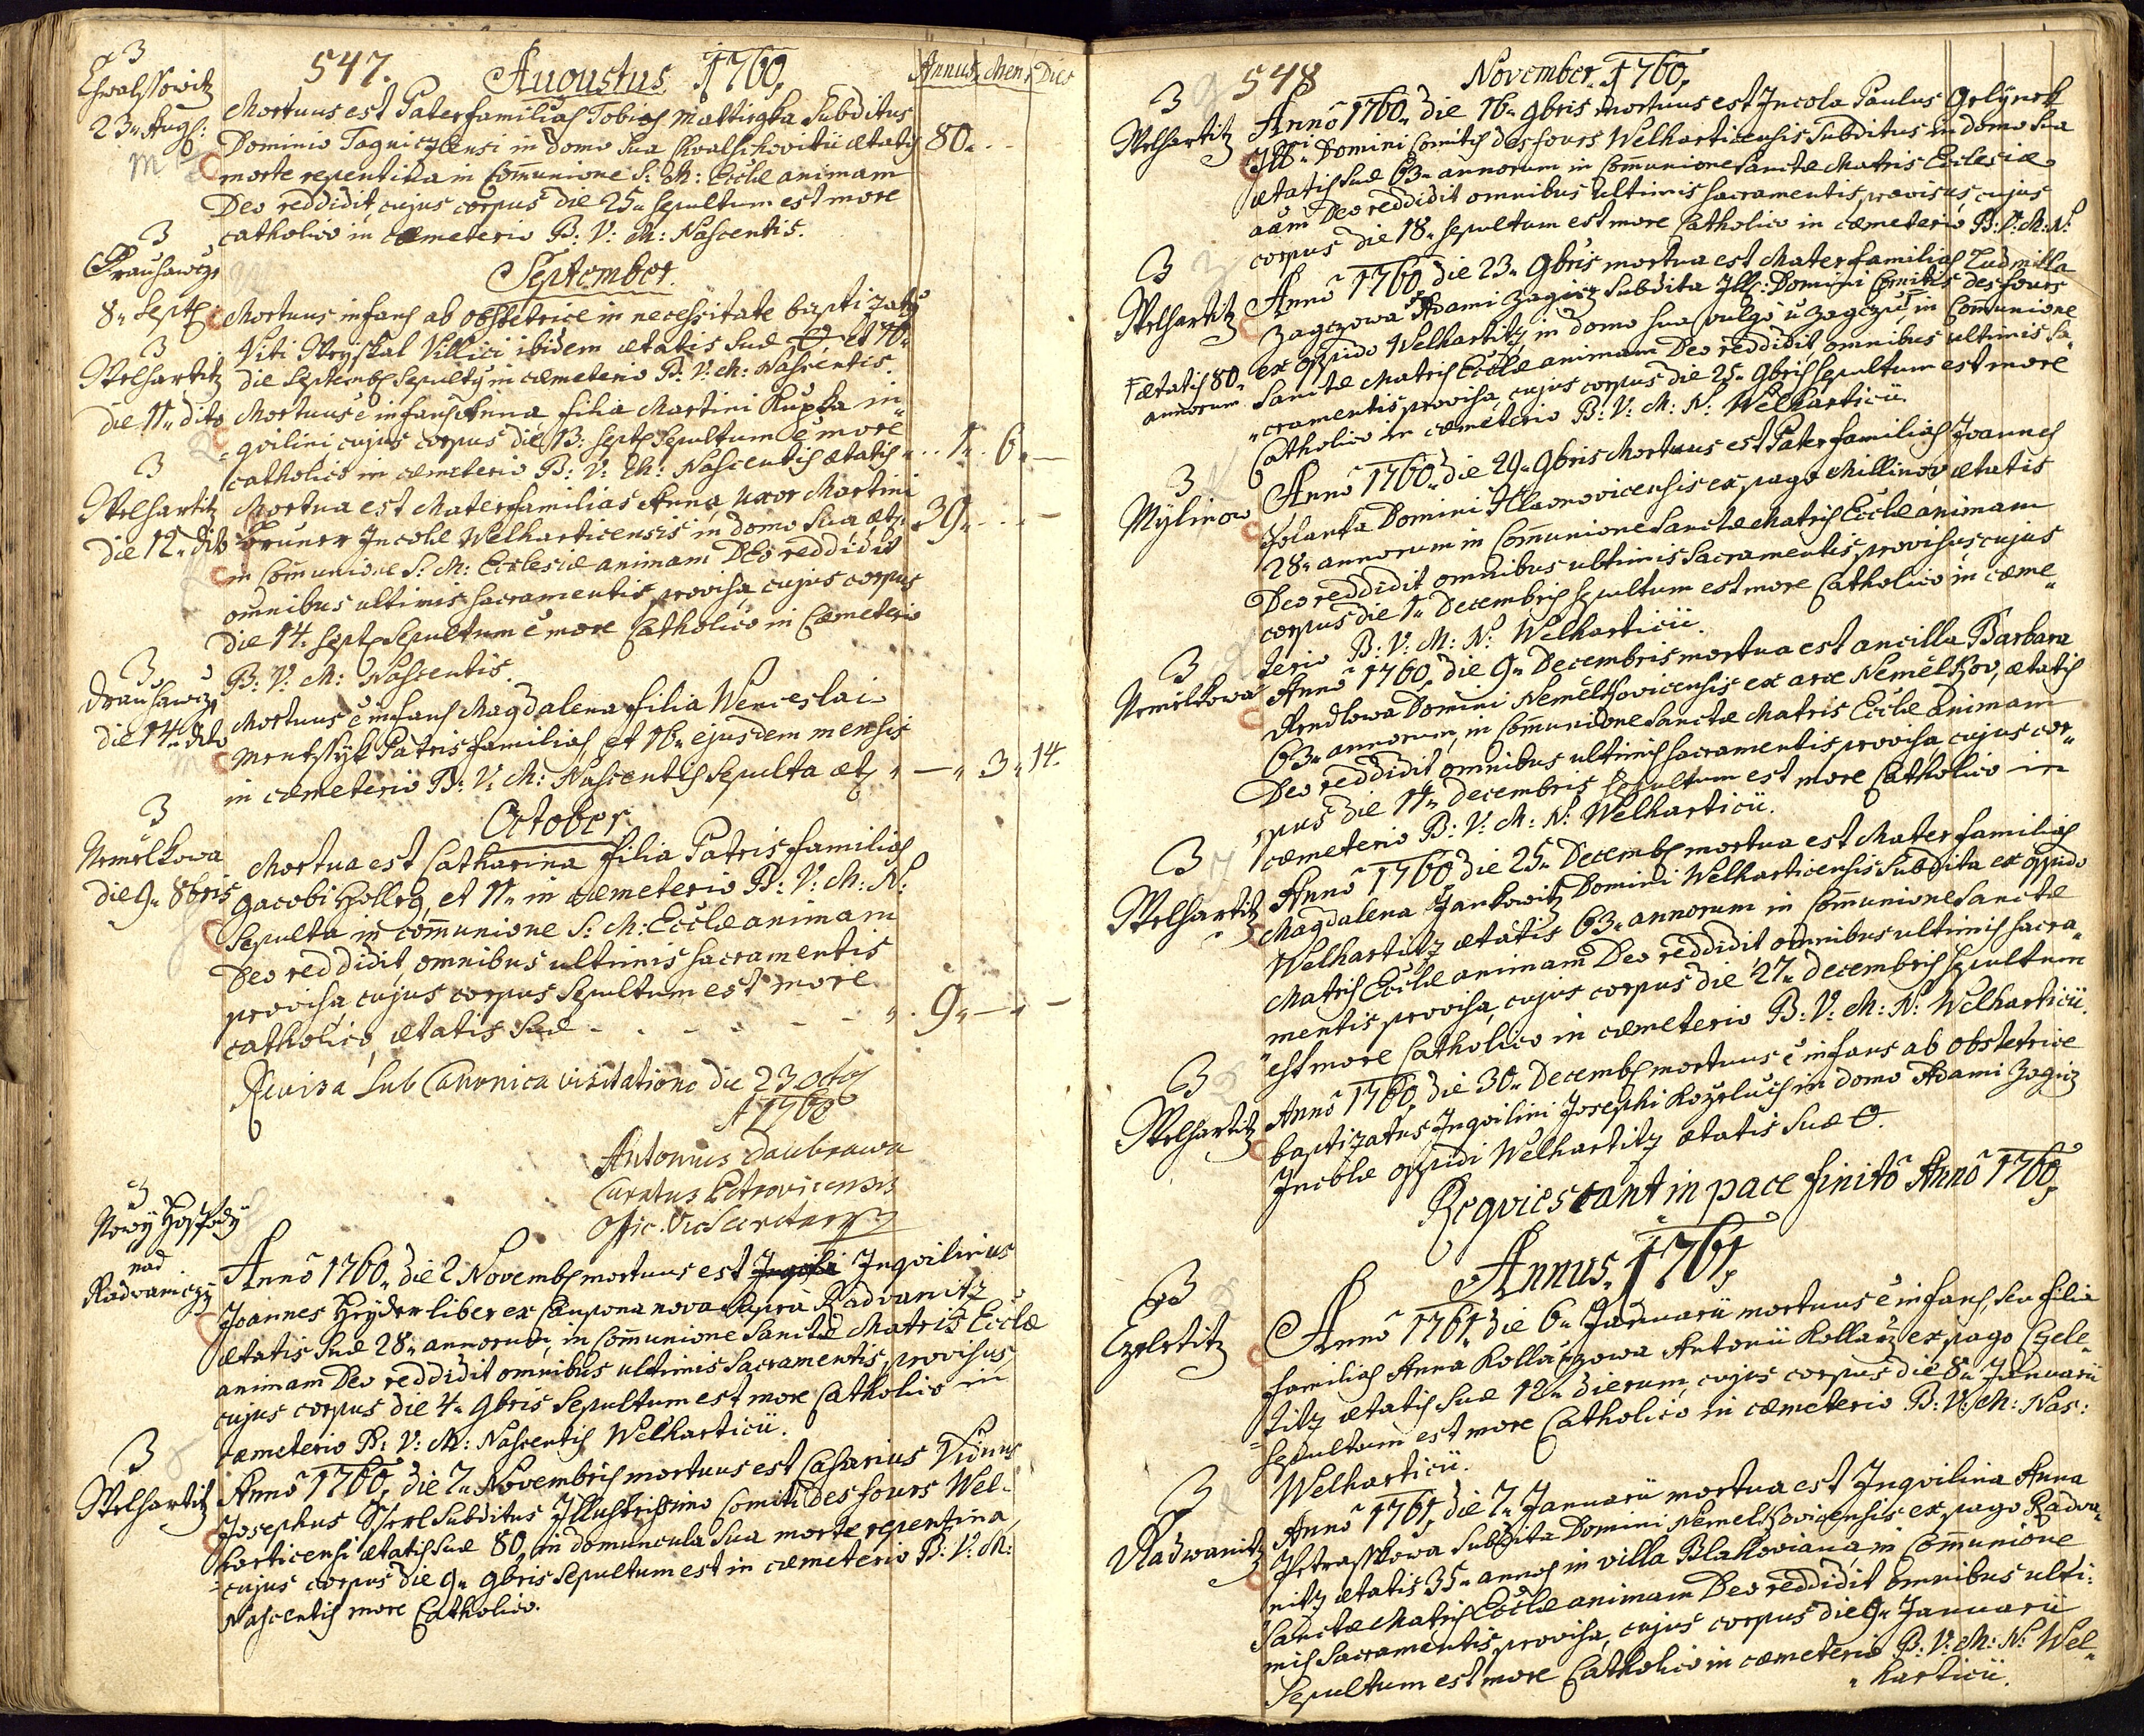 547. Augustus 1760. Annus Men: Dies
3
Chwalssowitz
23. Augs:
Mortuus est Paterfamilias Tobias Mattiegka Subditus
Dominio Tagniczensi in domo sua Chvalschovitii ætatis 80.
morte repentina in Com̄unione S: M: Ecclæ animam
Deo reddidit, cujus corpus die 25. sepultum est more
catholico in cæmeterio B: V: M: Nascentis.
September.
3
8. Sept:
Mortuus infans ab obstetrice in necessitate baptizatg
Viti Skryskal Villici ibidem ætatis suæ 0, et 10.
die Septemb. sepultg in cæmeterio B: V: M: Nascentis.
3
Welhartitz
die 11. dito
Mortuus ē infans Anna, filia Martini Kupka in
qvilini cujus corpus die 13: Sept: sepultum ē more
catholico in cæmeterio B: V: M: Nascentis ætatis 1. 6.
3
Welhartitz
die 12. dito
Mortua est Materfamilias Anna, uxor Martini
Bruner Incolæ Welharticensis in domo sua æt: 39.
in Com̄unione S: M: Ecclesiæ animam Deo reddidit
om̄nibus ultimis sacramentis provisa, cujus corpus
die 14. Sept: sepultum ē more Catholico in Cæmeterio
B: V: M: Nascentis.
3
Drauhawez
die 14. dito
Mortuus ē infans Magdalena filia Wenceslai
Mentssyk Patrisfamilias et 16. ejusdem mensis
in cæmeterio B: V: M: Nascentis sepulta æt: 3. 14.
October
3
Nemelkowa
die 9. 8bris
Mortua est Catharina filia Patrisfamilias
Jacobi Holleg, et 11. in cæmeterio B: V: M: N:
sepulta in com̄unione S: M: Ecclæ animam
Deo reddidit omnibus ultimis sacramentis
provisa, cujus corpus sepultum est more
catholico, ætatis suæ - - - - - 9.
Revisa sub Canonica visitatione die 23 8br
A 1760
Antonius Daubrawa
Curatus Petrovicensis
3
Nowy Hospody
nad
Radvaniczy
Anno 1760. die 2 Novemb. mortuus est Inqvilinus
Joannes Hryder liber ex Caupona nova supra Radvanitz
ætatis suæ 28. annorum, in Com̄unione Sanctæ Matris Ecclæ
animam Deo reddidit omnibus ultimis sacramentis provisus,
cujus corpus die 4. 9bris sepultum est more Catholico in
cæmeterio B: V: M: Nascentis Welharticii.
3
Welhartitz
Anno 1760. die 7. Novembris mortuus est Casarius Viduus
Josephus Sserl Subditus Illustrissimo Comiti Desfours Wel-
harticensi ætatis suæ 80. in domuncula sua morte repentina,
cujus corpus die 9. 9bris sepultum est in cæmeterio B: V: M:
Nascentis more Catholico.
548 November. 1760.
3
Welhartitz
Anno 1760. die 16. 9bris mortuus est Incola Paulus Gelynek
Ill: Domini Comitis desfours Welharticensis Subditus in domo sua
ætatis suæ 63. annorum in Com̄unione Sanctæ Matris Ecclesiæ
aām Deo reddidit omnibus ultimis sacramentis provisus, cujus
corpus die 18. sepultum est more Catholico in cæmeterio B: V: M: N:
3
Welhartitz
Anno 1760. die 23. 9bris mortua est Materfamilias Ludmilla
Zagczowa Adami Zagicz Subdita Ill: Domini Comitis desfours
ex oppido Welhartitz in domo sua vulgo u Zagczu in Com̄unione
† ætatis 80.
annorum
Sanctæ Matris Ecclæ animam Deo reddidit omnibus ultimis sa-
cramentis provisa, cujus corpus die 25. 9bris sepultum est more
Catholico in cæmeterio B: V: M: N: Welharticii.
3
Mylinow
Anno 1760. die 29. 9bris Mortuus est Paterfamilias Joannes
Holanka Domini Hlavnovicensis ex pago Millinov, ætatis
28. annorum in Com̄unione Sanctæ Matris Ecclæ animam
Deo reddidit omnibus ultimis Sacramentis provisus cujus
corpus die 1. Decembris sepultum est more Catholico in cæme-
terio B: V: M: N: Welharticii.
3
Nemelkowa
Anno 1760. die 9. Decembris mortua est ancilla Barbara
Rendlowa Domini Nemelkovicensis ex arce Nemelkov, ætatis
63. annorum, in Com̄unione Sanctæ Matris Ecclæ animam
Deo reddidit omnibus ultimis sacramentis provisa, cujus cor-
pus die 11. Decembris sepultum est more Catholico in
cæmeterio B: V: M: N: Welharticii.
3
Welhartitz
Anno 1760 die 25. Decemb. mortua est Materfamilias
Magdalena Jankowitz Domini Welharticensis Subdita ex oppido
Welhartitz ætatis 63. annorum in Com̄unione Sanctæ
Matris Ecclæ animam Deo reddidit, omnibus ultimis sacra-
mentis provisa, cujus corpus die 27. Decembris sepultum
est more Catholico in cæmeterio B: V: M: N: Welharticii.
3
Welhartitz
Anno 1760. die 30. Decemb. mortuus ē infans ab obstetrice
baptizatus, Inqvilini Josephi Kozeluch in domo Adami Zagicz
Incolæ oppidi Welhartitz ætatis suæ 0.
Reqviescant in pace finito Anno 1760.
Annus. 1761.
3
Czeletitz
Anno 1761. die 6. Januarii mortuus ē infans, seu filia
familias Anna Kollarzowa Antonii Kollarz ex pago Czele-
titz ætatis suæ 12. dierum, cujus corpus die 8. Januarii
sepultum est more Catholico in cæmeterio B: V: M: Nas:
Welharticii.
3
Radwanitz
Anno 1761. die 7. Januarii mortua est Inqvilina Anna
Petrasskowa Subdita Domini Nemelkovicensis ex pago Radva-
nitz ætatis 35. annos in villa Blahoviana, in Com̄unione
Sanctæ Matris Ecclæ animam Deo reddidit omnibus ulti-
mis Sacramentis provisa, cujus corpus die 9. Januarii
Sepultum est more Catholico in cæmeterio B: V: M: N: Wel-
harticii.